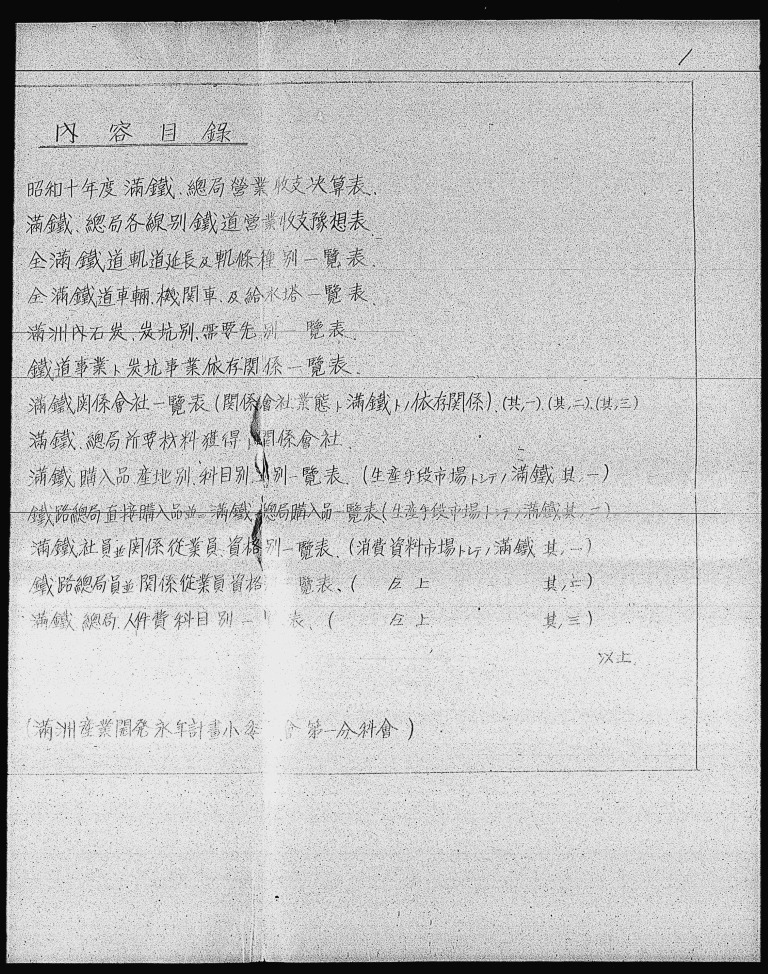 1
內容目錄
昭和十年度滿鐵、總局營業收支決算表、
滿鐵、總局各線別鐵道營業收支豫想表
全滿鐵道軌道延長及軌條種別一覽表、
全滿鐵道車輛、機関車、及給水塔一覽表、
滿洲內石炭、炭坑別、需要先別一覽表、
鐵道事業ト炭坑事業依存関係一覽表、
滿鐵関係會社一覽表(関係會社業態ト滿鐵トノ依存関係)、(其ノ一)、(其ノ二)、(其ノ三)
滿鐵、總局所要材料獲得関係會社
滿鐵、購入品產地別、科目別、別一覽表、(生產手段市場トシテノ滿鐵其ノ一)
鐵路總局直接購入品並ニ滿鐵、總局購入品一覽表(生產手段市場トシテノ滿鐵其ノ二)
滿鐵、社員並関係從業員資格別一覽表、(消費資料市場トシテノ滿鐵其ノ一)
鐵路總局員並関係從業員資格覽表、(仝上其ノ二)
滿鐵、總局、人件費科目別一表、(仝上其ノ三)
以上
(滿洲產業開発永年計畫小委會第一分科會)